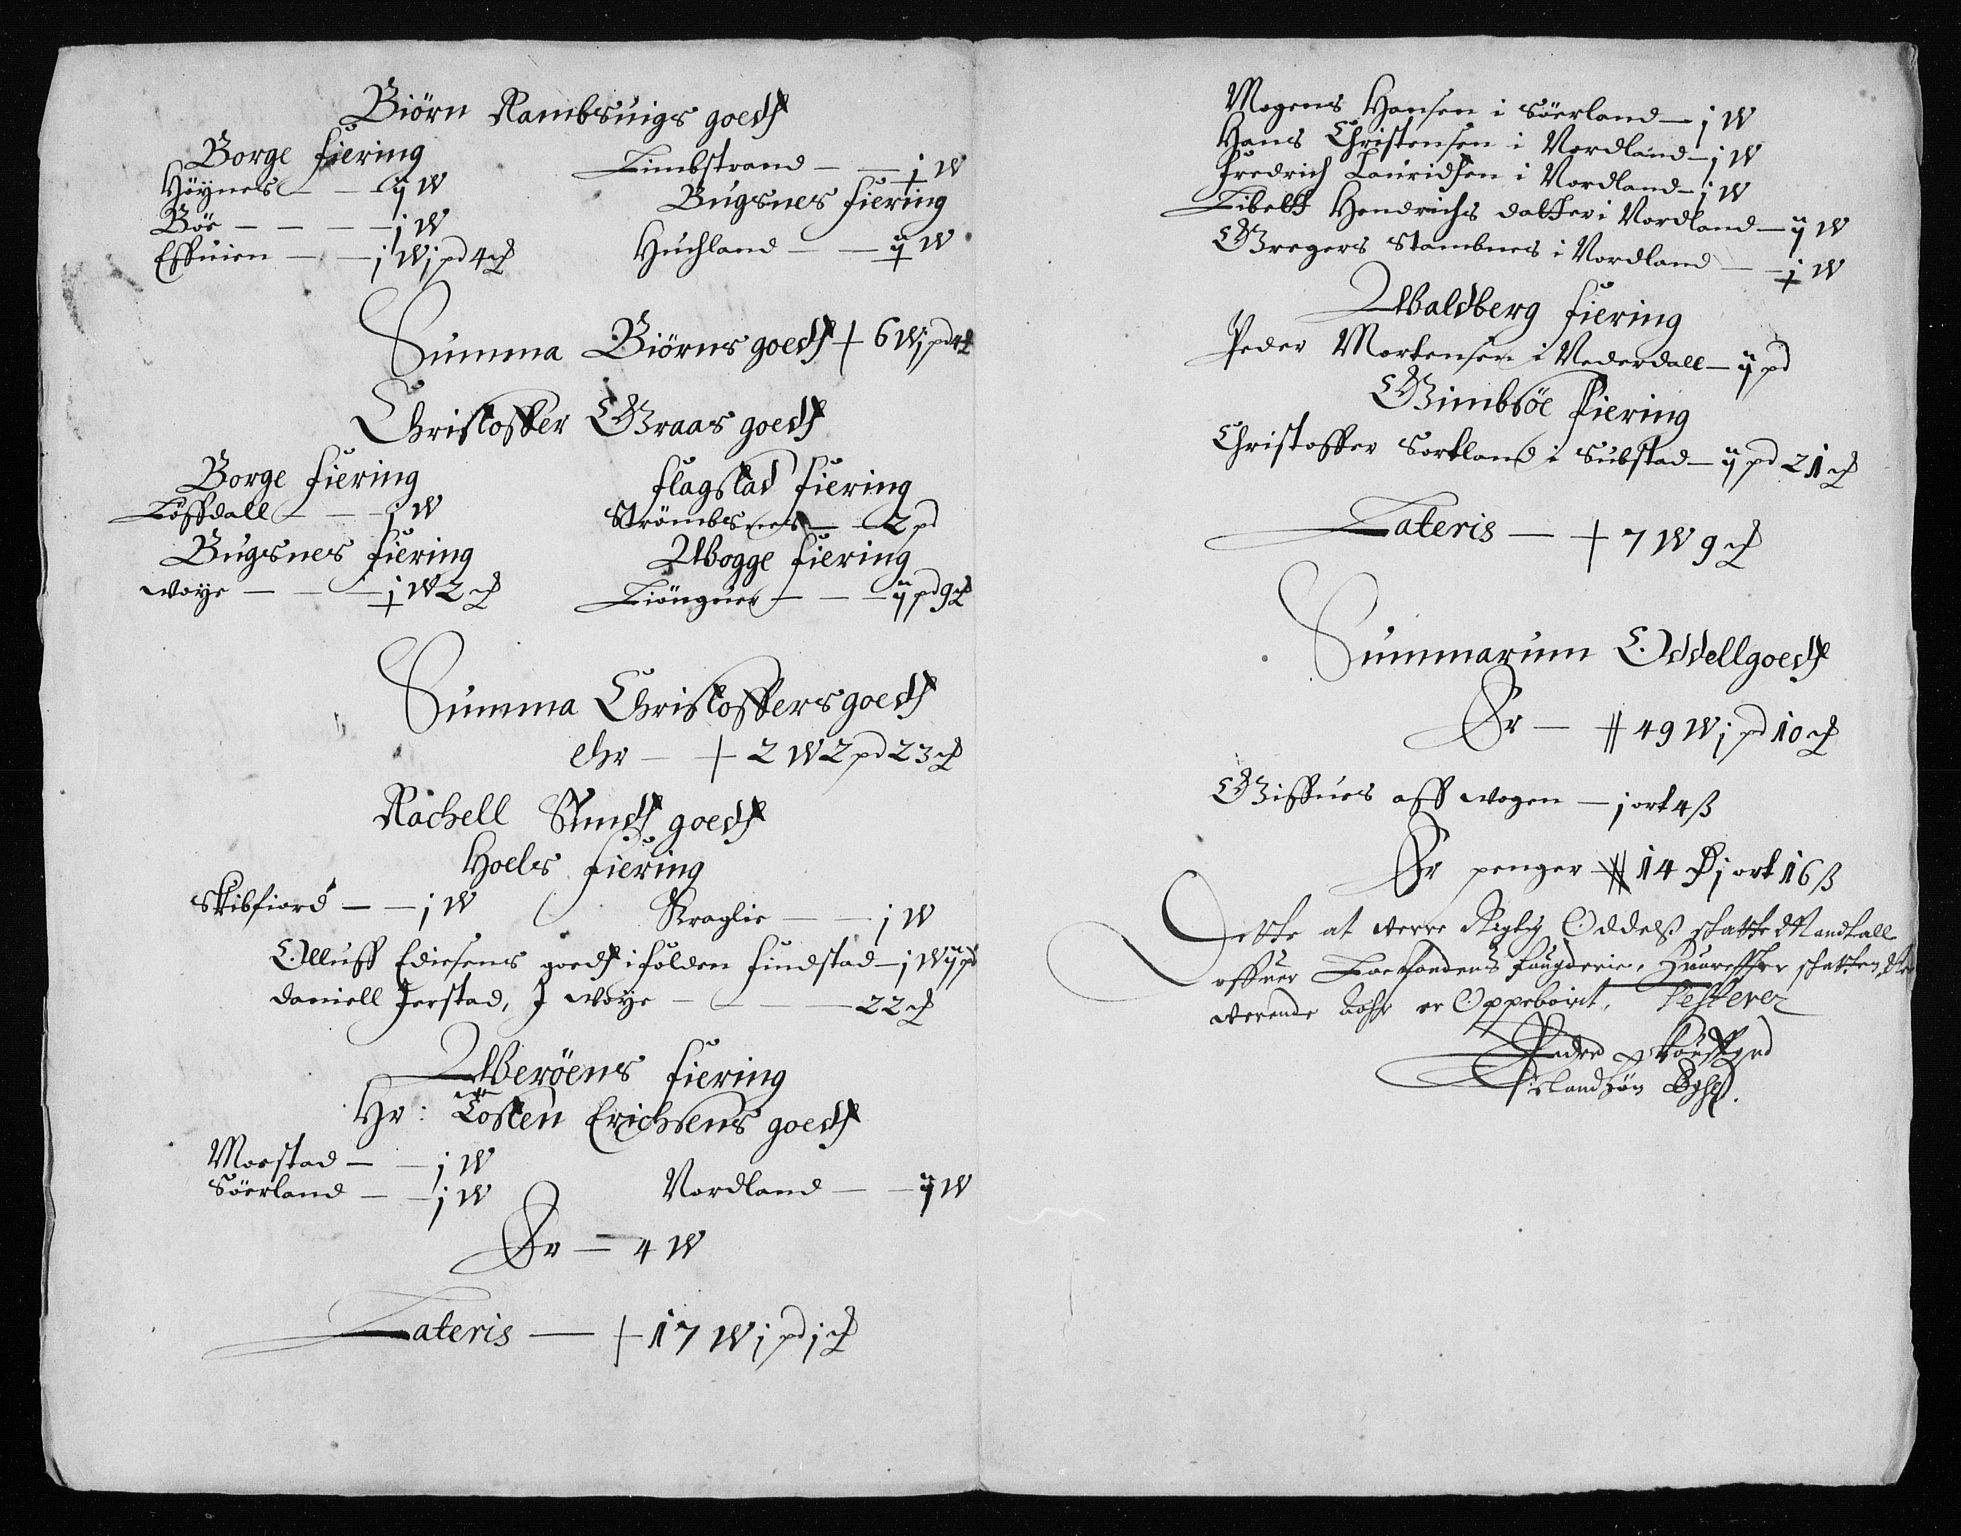 Biörn Rambsuigs goedtz
Borge fiering
Höynes — — ij W
Böe — — — — j W
Effuien — — j W j pd 4 ℔
Limbstrand — — j W
Bugsnes fiering
Huchland — — ij W
Summa Biörns goedtz + 6 W j pd 4 ℔
Christoffer Graas goedtz
Borge fiering
Löffdall — — j W
Bugsnes fiering
Woye — — — j W 2 ℔
flagstad fiering
Strömbsnes — 2 pd
Wogge fiering
Liönguer — — — ij pd 9 ℔
Summa Christoffers goedtz
ehr — + 2 W 2 pd 23 ℔
Rachell goedtz
Hoels fiering
Skibfiord — — j W
Kraglie — — j W
Olluff Ediesens goedtz i folden findstad — j W ij pd
Daniell Jerstad, J Woye — — — 22 ℔
Weröens fiering
Hr: Tosten Erichsens goedtz
Moestad — — j W
Söerland — — j W
Nordland — — ij W
Er — 4 W
Lateris — + 17 W j pd j ℔
Mogens Hansen i Söerland — j W
Hans Christensen i Nordland — j W
Fredrich Lauridsen i Nordland — j W
Libeth Hendrichs datter i Nordland — ij W
Gregers Stambnes i Nordland — — j W
Waldberg fiering
Peder Mortensen i Nederdall — ij pd
Gimbsöe fiering
Christoffer Sortland i Substad — ij pd 21 ℔
Lateris — + 7 W 9 ℔
Summarum Oddellgoedtz
Er — 49 W j pd 10 ℔
Giffues aff wogen — j ort 4 ß
Er penger 14 D j ort 16 ß
Dette at werre Rigtig Oddelß schatte Mandtall
offuer Loefoedens fougderie, Huoreffter schatten dette
werende Aahr er Oppeboirit, Testerer
Peder